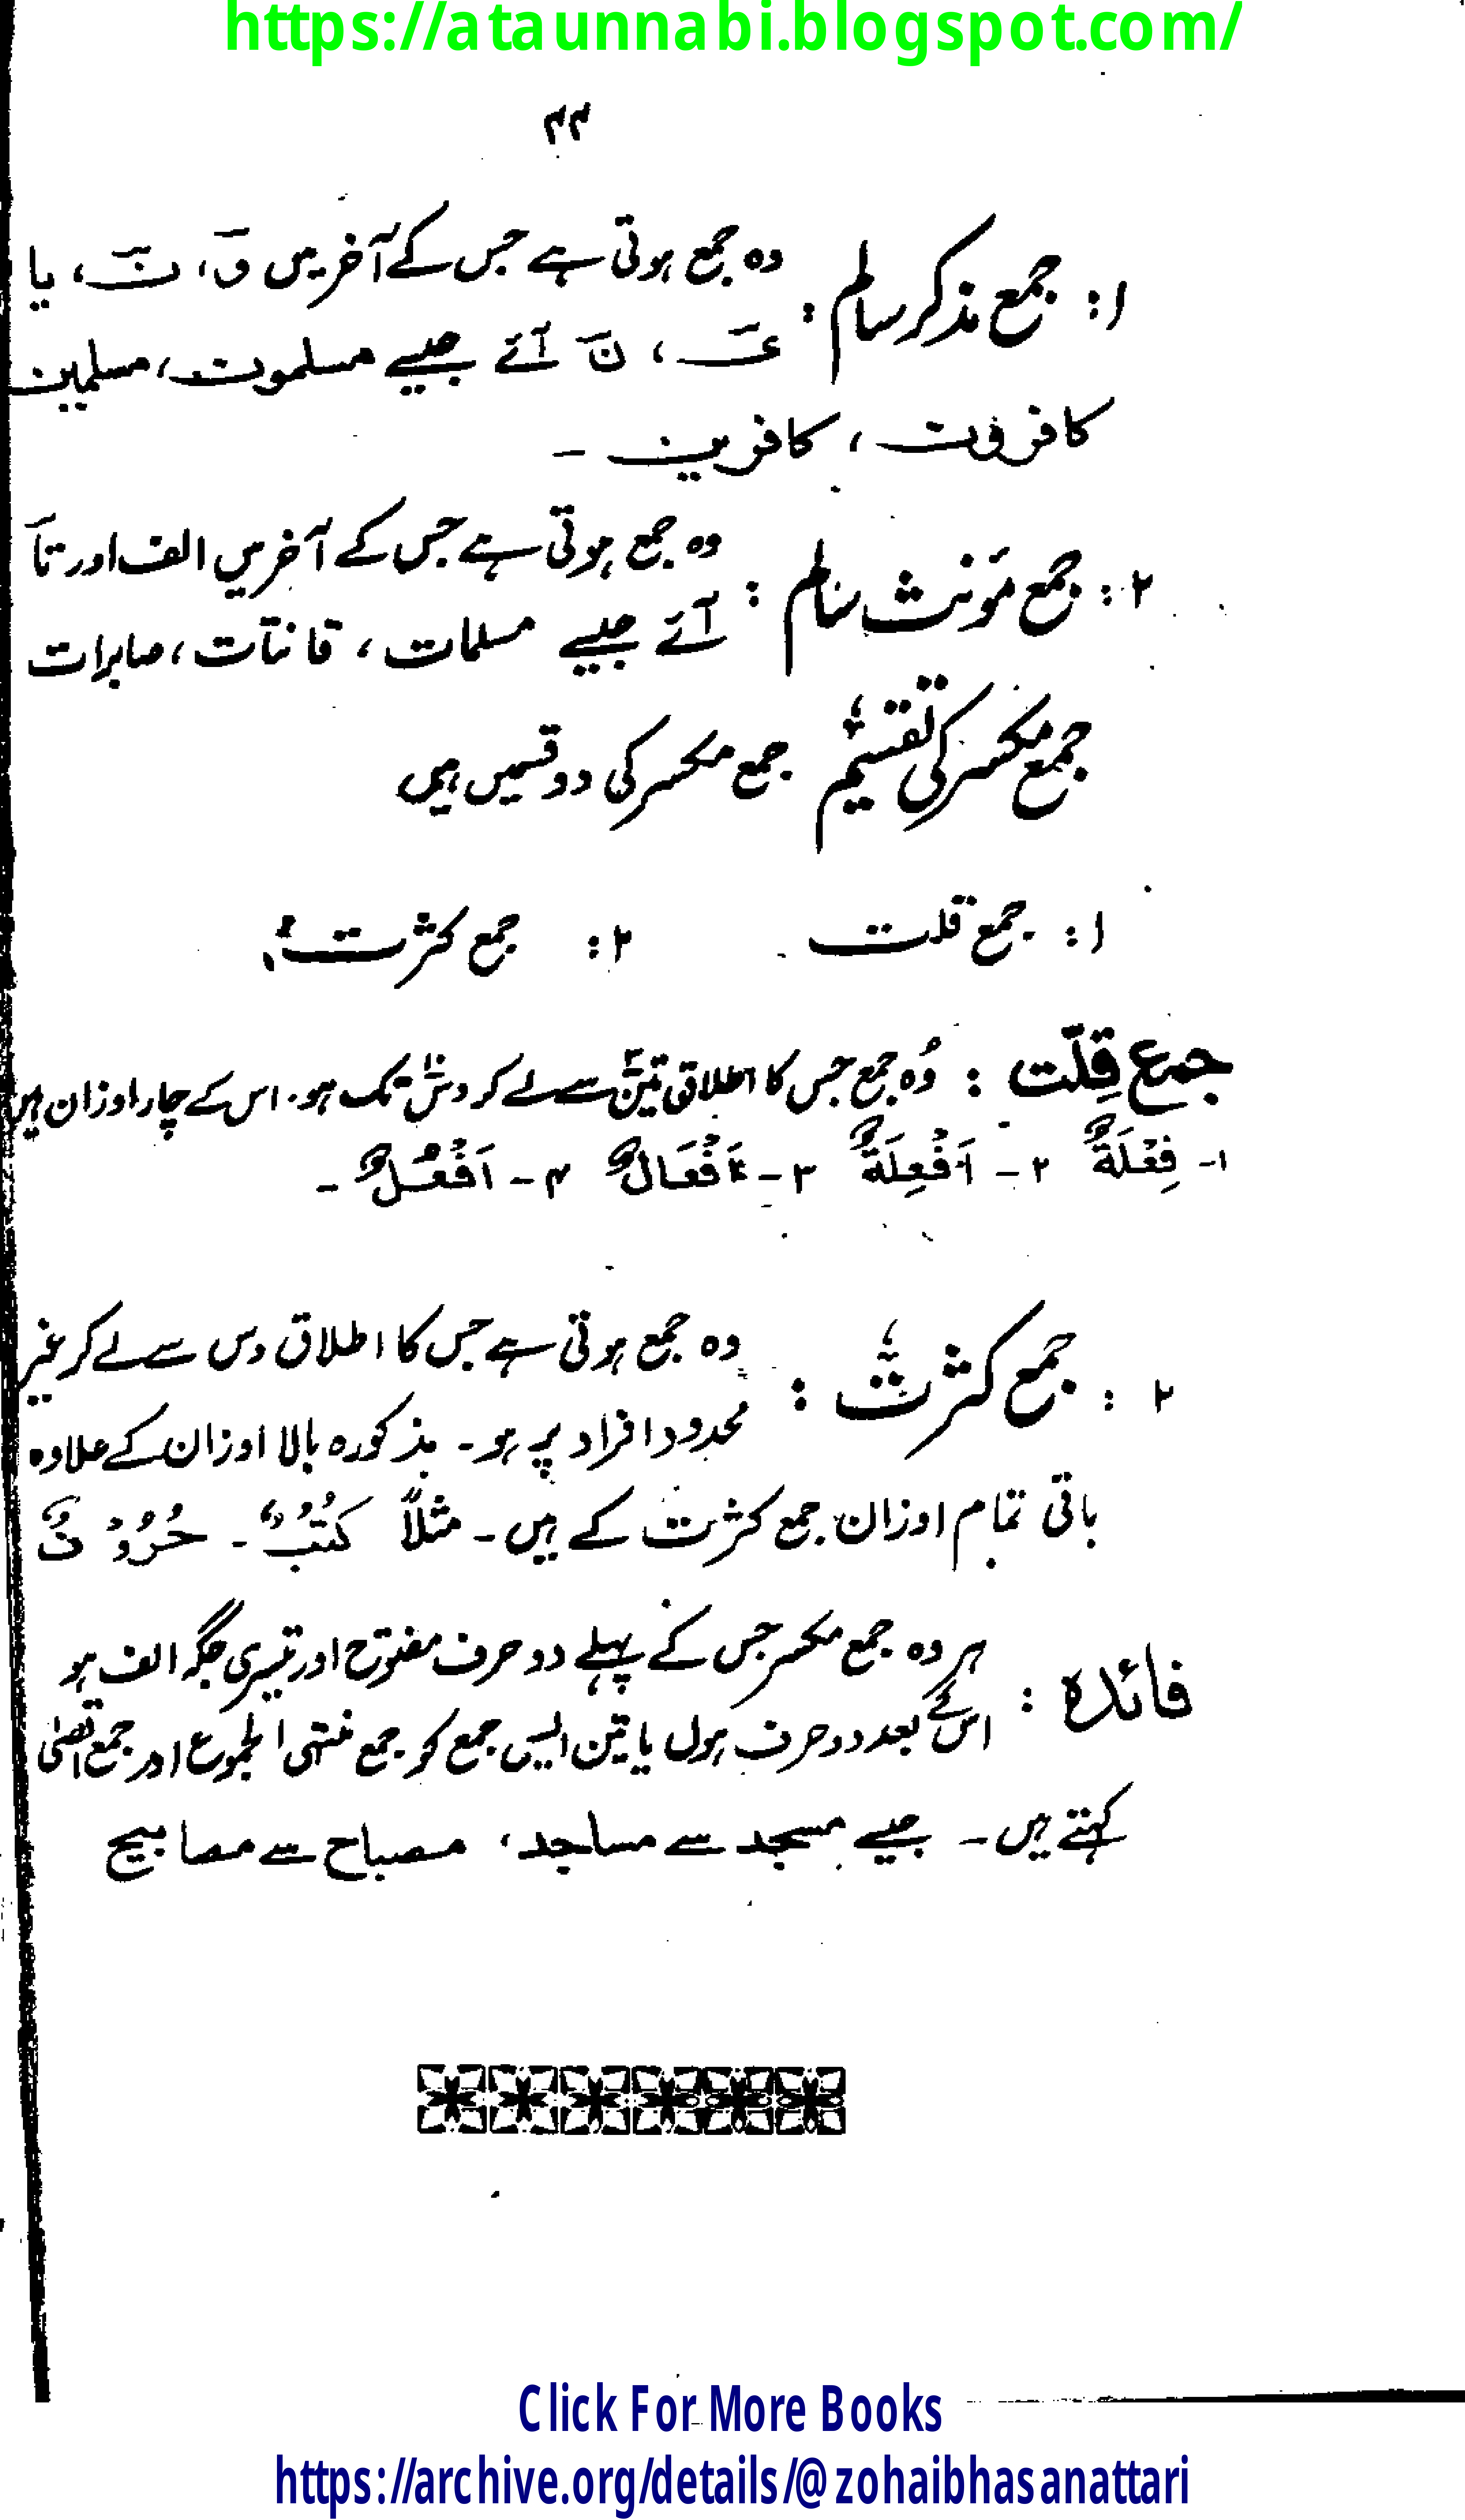 https://ataunnabi.blogspot.com/
۴۴
۱: جمع مذکر سالم: وہ جمع ہوتی ہے جس کے آخر میں وَ، نَ، یا
یَ، نَ آئے جیسے مسلمون، مسلمین
کافرون، کافرین ۔
۲: جمع مؤنث سالم: وہ جمع ہوتی ہے جس کے آخر میں الف اور تاَ
آئے جیسے مسلمات، قانتات، صابرات
جمع مکسر کی تقسیم جمع مکسر کی دو قسمیں ہیں
۱: جمع قلت ۲: جمع کثرت
جمع قِلّت: وُہ جمع جس کا اطلاق تین سے لے کر دس تک ہو۔ اس کے چار اوزان ہیں
۱۔ فِعْلَةٌ ۲۔ اَفْعِلَةٌ ۳۔ اَفْعَالٌ ۴۔ اَفْعُلٌ ۔
۲: جمع کثرت: وہ جمع ہوتی ہے جس کا اطلاق دس سے لے کر غیر
محدود افراد پر ہو۔ مذکورہ بالا اوزان کے علاوہ
باقی تمام اوزان جمع کثرت کے ہیں۔ مثلاً کُتُبٌ ۔ حُرُوْفٌ
فائدہ: ہر وہ جمع مکسر جس کے پہلے دو حرف مفتوح اور تیسری جگہ الف ہو
اس کے بعد دو حرف ہوں یا تین ایسی جمع کو جمع منتہی الجموع اور جمع اقصیٰ
کہتے ہیں۔ جیسے مسجد سے مساجد، مصباح سے مصابیح
Click For More Books
https://archive.org/details/@zohaibhasanattari